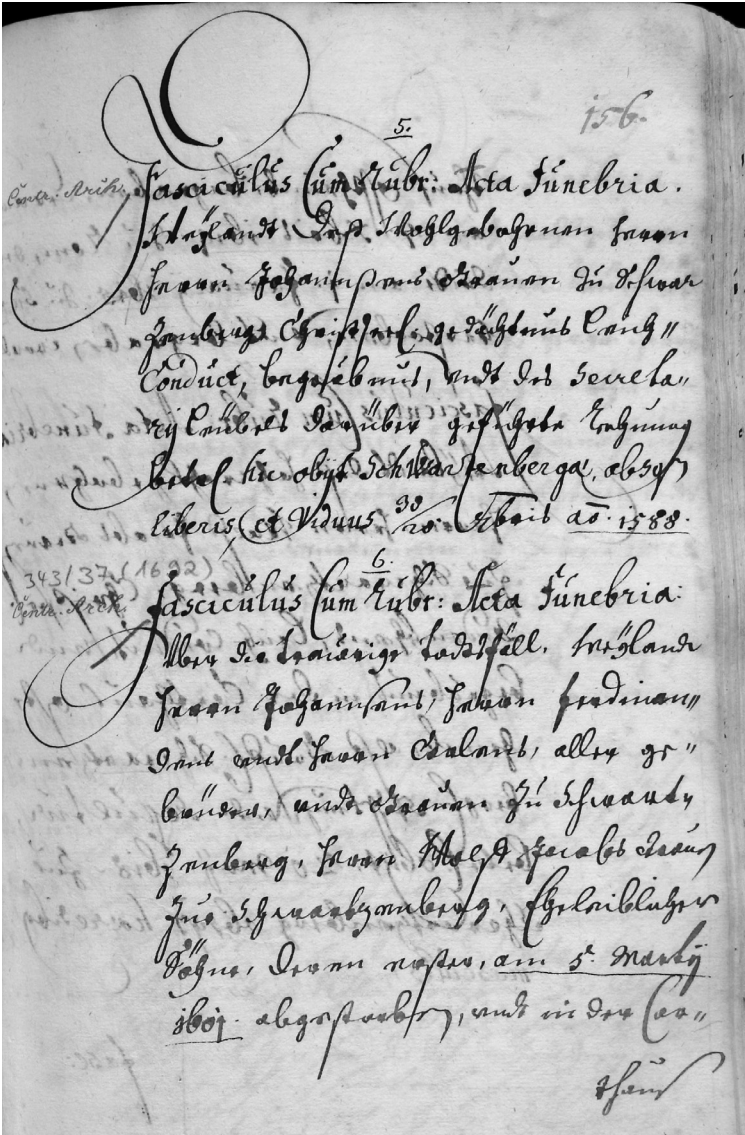 156.
5.
Centr. Arch.
Fasciculus Cum Rubr: Acta Funebria.
Weÿlandt Deß Wohlgebohrnen Herrn
Herrn Johannßens, Grauen zu Schwar
zenberg Christseel: gedächtnus Leuch=
Conduct, begräbnus, undt des Secreta=
rÿ Leübels darüber geführte Rechnung
betref hic obÿt Schwarzenbergæ, absq
liberis, et Viduus 30/20 Xbris aõ. 1588.
343/37 (1692)
6.
Centr. Arch.
Fasciculus Cum Rubr: Acta Funebria:
Uber die traurige todtsfäll, Weÿlandt
Herrn Johannsens, Herrn Ferdinan=
dens undt Herrn Carlens, aller ge=
brüder, undt Grauen zu Schwart=
zenberg, Herrn Wolff Jacobs Grauen
zue Schwartzenberg, Eheleiblicher
Söhne, deren erster, am 5t. Martÿ
1601. abgestorben, undt in der Car=
thaus